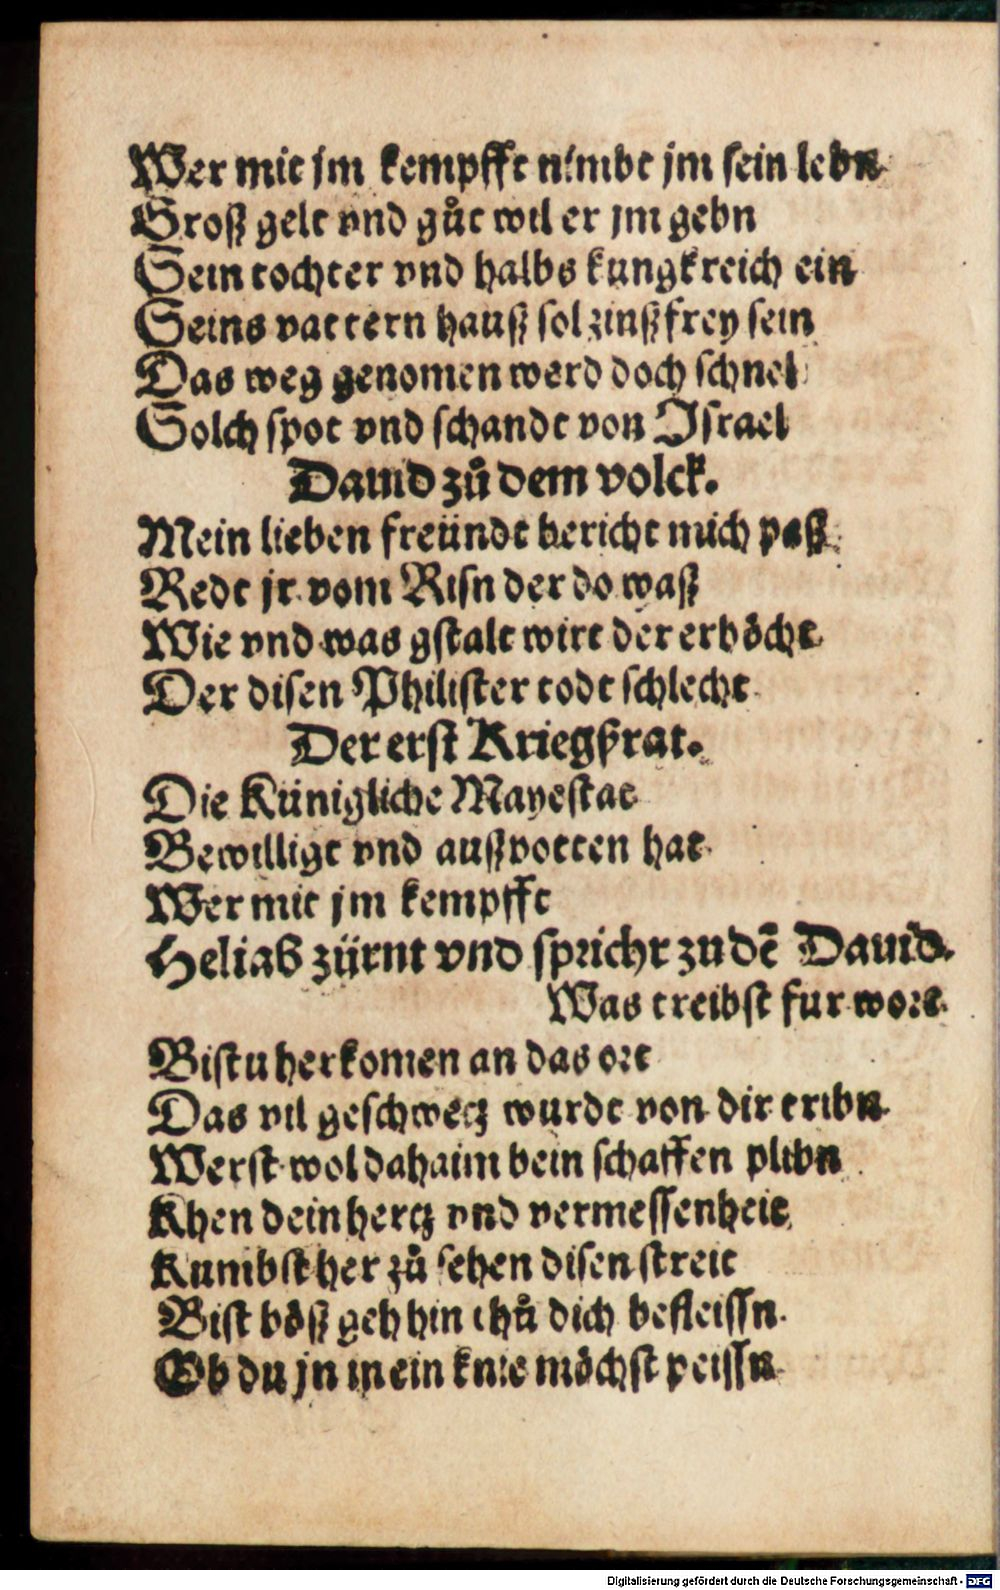 Wer mit jm kempfft nimbt jm sein lebn
Groß gelt vnd gůt wil er jm gebn
Sein tochter vnd halbs kungkreich ein
Seins vattern hauß sol zinßfrey sein
Das weg genomen werd doch schnel
Solch spot vnd schandt von Israel
Dauid zů dem volck.
Mein lieben freündt bericht mich paß
Redt jr vom Risn der do waß
Wie vnd was gstalt wirt der erhöcht
Der disen Philister todt schlecht
Der erst Kriegßrat.
Die Künigliche Mayestat
Bewilligt vnd außpotten hat
Wer mit jm kempfft
Heliab zürnt vnd spricht zu dẽ Dauid.
Was treibst fur wort
Bistu herkomen an das ort
Das vil geschwetz wurdt von dir tribn
Werst wol dahaim bein schaffen plibn
Khen dein hertz vnd vermessenheit
Kumbst her zů sehen disen streit
Bist böß geh hin thů dich befleissn
Ob du jn in ein knie möchst peissn
Digitalisierung gefördert durch die Deutsche Forschungsgemeinschaft - DFG